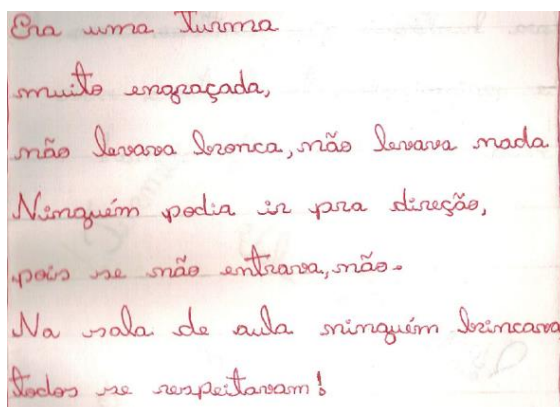 Era uma turma
muito engraçada,
não levava bronca, não levava nada
Ninguém podia ir pra direção,
pois se não entrava, não.
Na sala de aula ninguém brincava
todos se respeitavam!